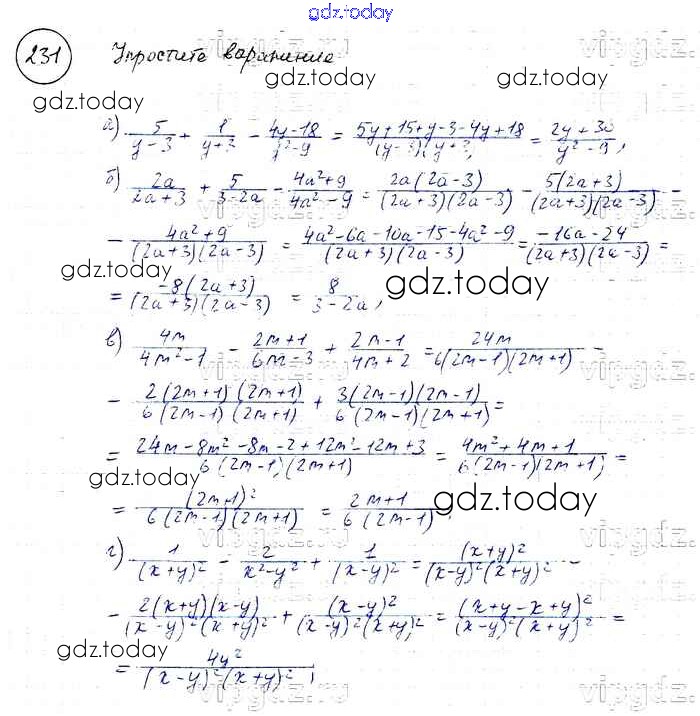 gdz.today
231 Упростите выражение
а) 5/(y-3) + 1/(y+3) - (4y-18)/(y²-9) = (5y+15+y-3-4y+18)/((y-3)(y+3)) = (2y+30)/(y²-9),
б) 2a/(2a+3) + 5/(3-2a) - (4a²+9)/(4a²-9) = 2a(2a-3)/((2a+3)(2a-3)) - 5(2a+3)/((2a+3)(2a-3)) -
- (4a²+9)/((2a+3)(2a-3)) = (4a²-6a-10a-15-4a²-9)/((2a+3)(2a-3)) = (-16a-24)/((2a+3)(2a-3)) =
= -8(2a+3)/((2a+3)(2a-3)) = 8/(3-2a),
в) 4m/(4m²-1) - (2m+1)/(6m-3) + (2m-1)/(4m+2) = 24m/(6(2m-1)(2m+1)) -
- 2(2m+1)(2m+1)/(6(2m-1)(2m+1)) + 3(2m-1)(2m-1)/(6(2m-1)(2m+1)) =
= (24m-8m²-8m-2+12m²-12m+3)/(6(2m-1)(2m+1)) = (4m²+4m+1)/(6(2m-1)(2m+1)) =
= (2m+1)²/(6(2m-1)(2m+1)) = (2m+1)/(6(2m-1))
г) 1/(x+y)² - 2/(x²-y²) + 1/(x-y)² = (x+y)²/((x-y)²(x+y)²) -
- 2(x+y)(x-y)/((x-y)²(x+y)²) + (x-y)²/((x-y)²(x+y)²) = (x+y-x+y)²/((x-y)²(x+y)²) =
= 4y²/((x-y)²(x+y)²),